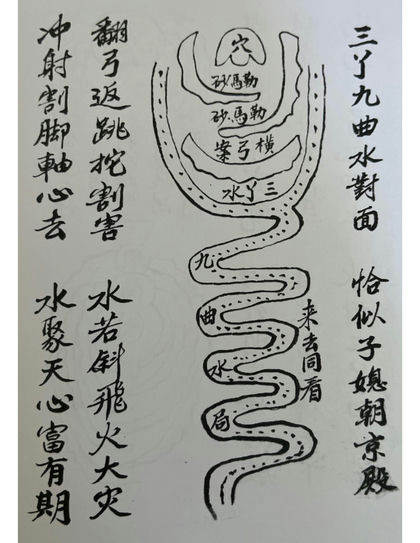 三丫九曲水對面　恰似子媳朝京殿
穴
勒馬砂
勒馬砂
橫弓案
三丫水
九曲水局
来去同看
翻弓返跳挖割害　水若斜飛火大灾
冲射割脚軸心去　水聚天心富有期